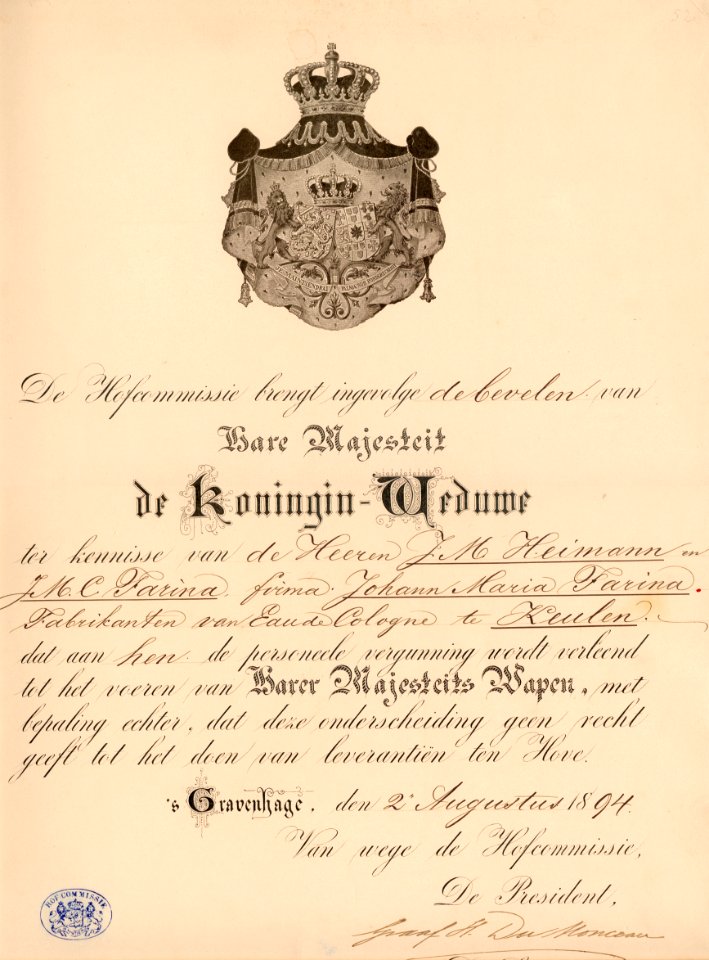 52
De Hofcommissie brengt ingevolge de bevelen van
Hare Majesteit
de Koningin-Weduwe
ter kennisse van de Heeren J. M Heimann en
J. M. C. Farina, firma Johann Maria Farina.
Fabrikanten van Eau de Cologne te Keulen.
dat aan hen de personeele vergunning wordt verleend
tot het voeren van Harer Majesteits Wapen, met
bepaling echter, dat deze onderscheiding geen recht
geeft tot het doen van leverantiën ten Hove.
's Gravenhage, den 2n Augustus 1894.
Van wege de Hofcommissie,
De President,
HOFCOMMISSIE
Graaf H. Du Monceau